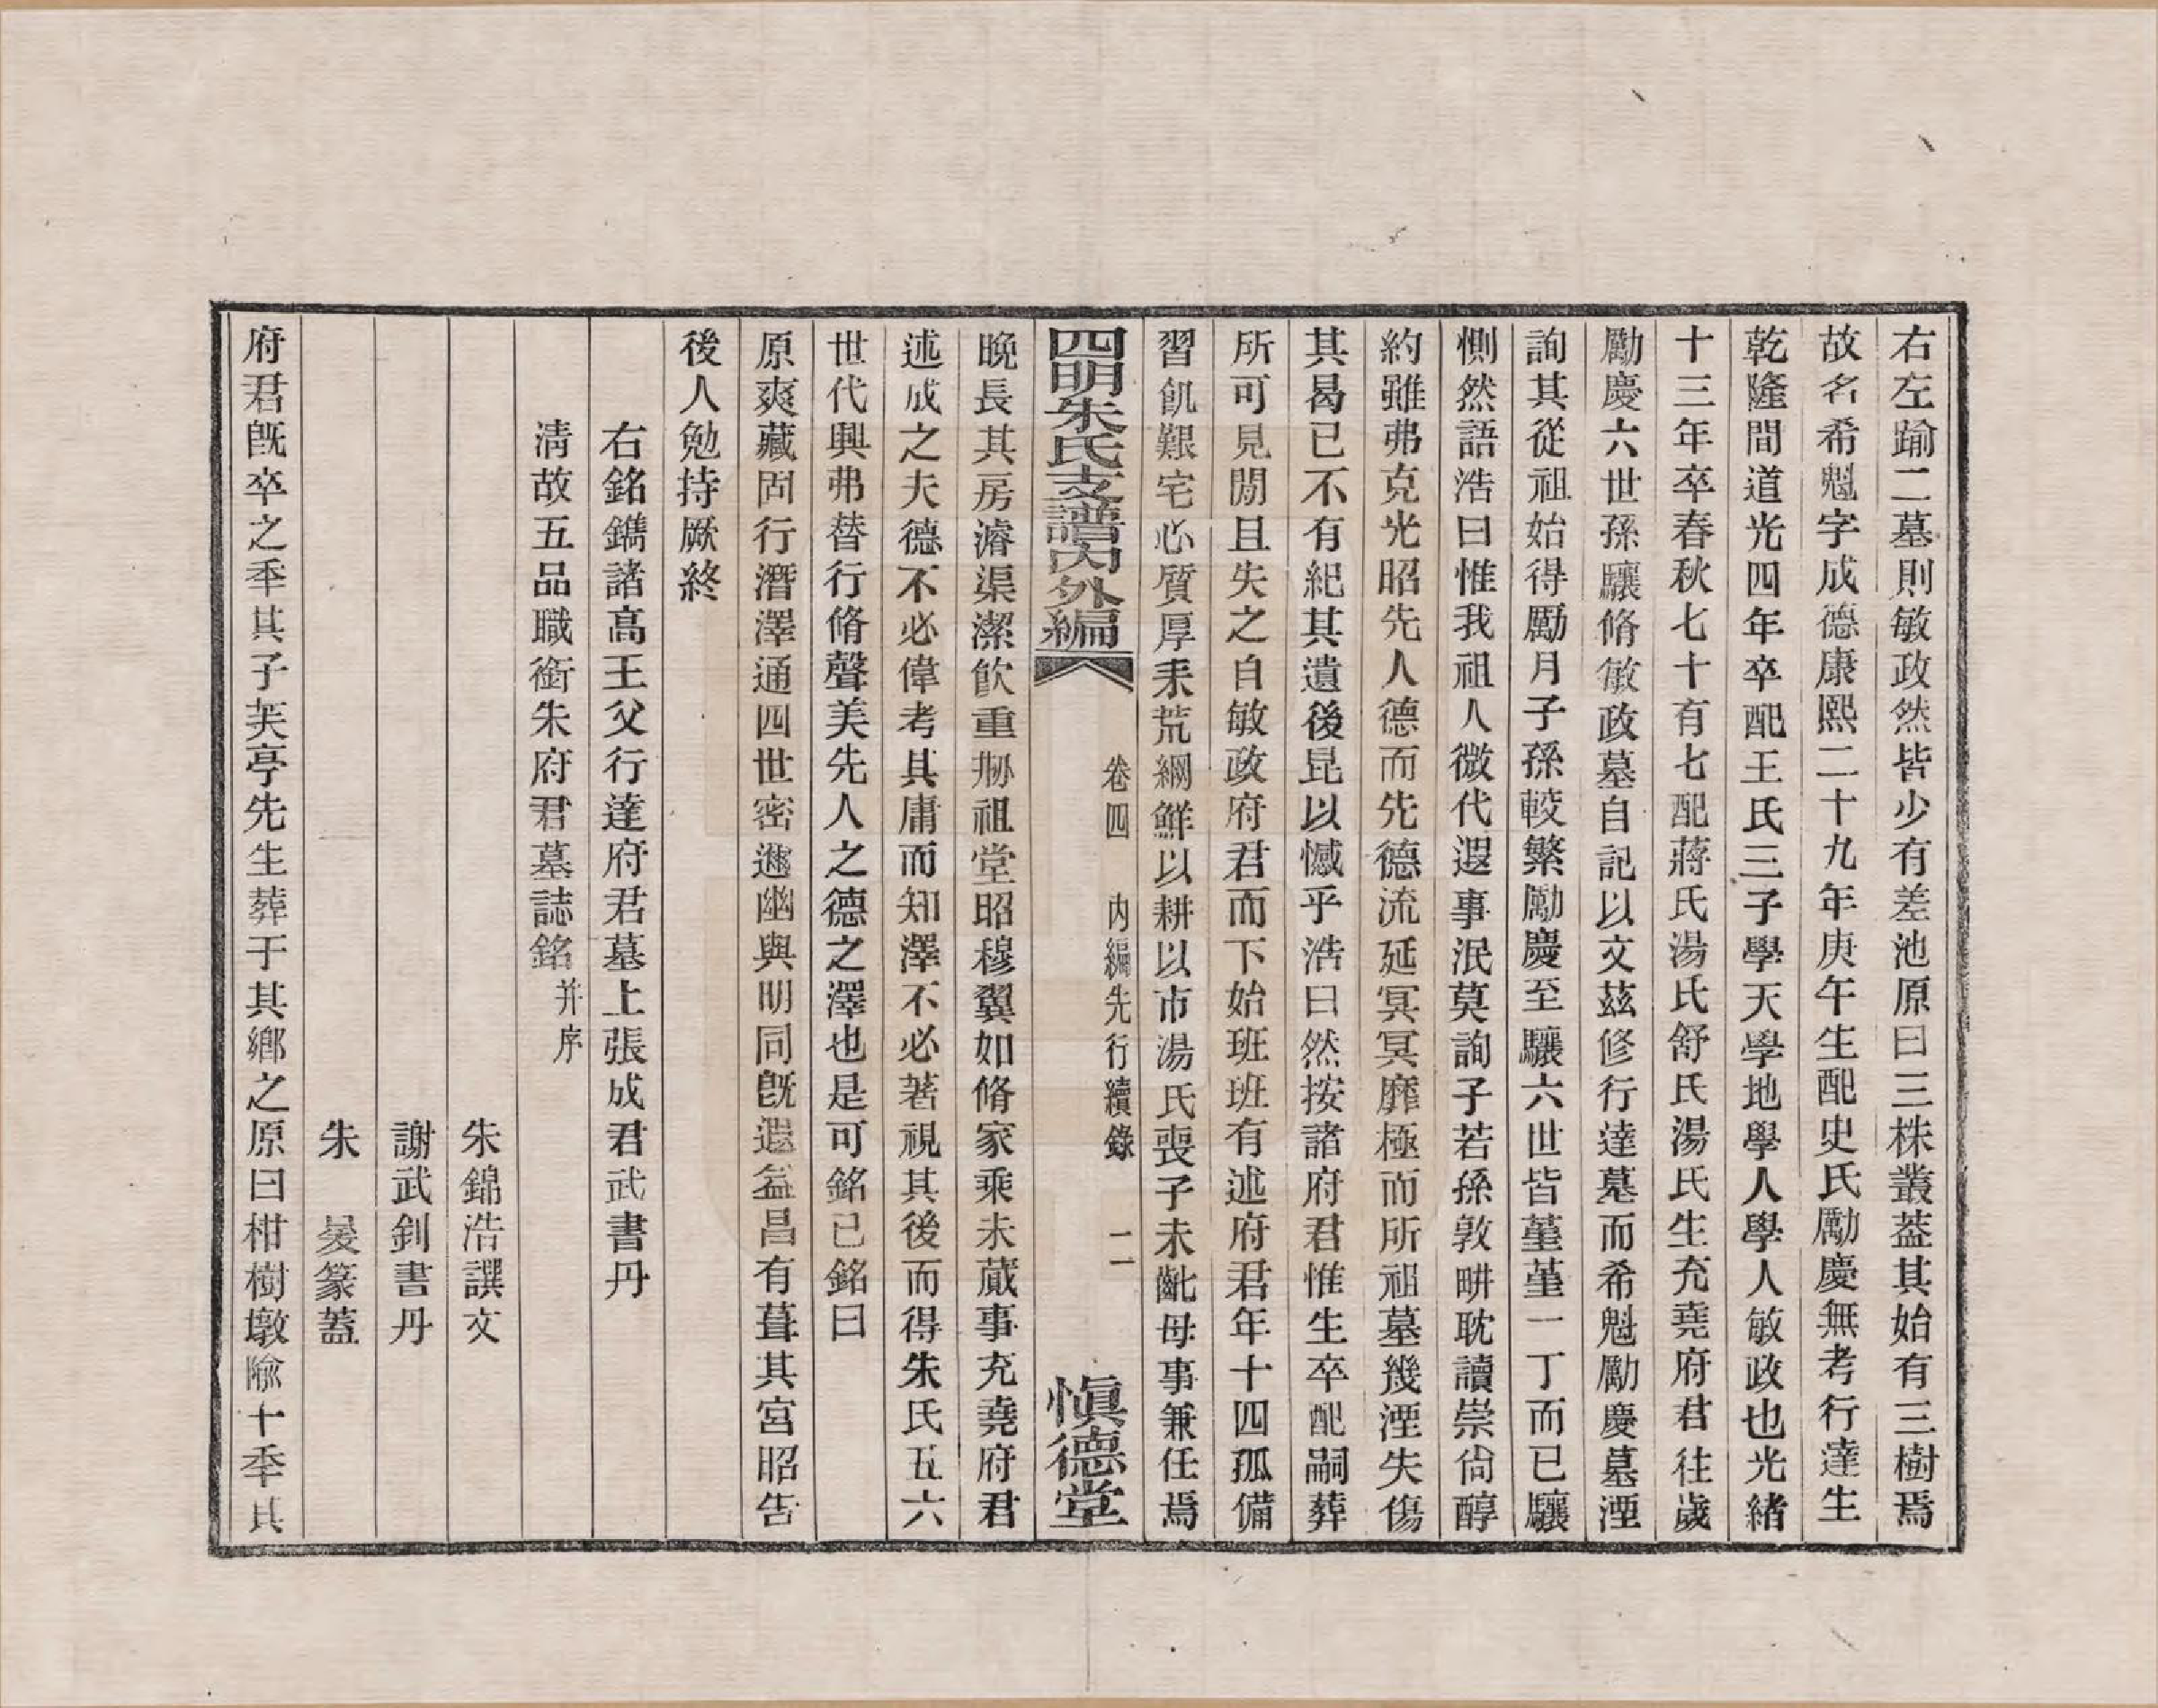 右左踰二墓則敏政然皆少有差池原曰三株叢葢其始有三樹焉
故名希魁字成德康熙二十九年庚午生配史氏勵慶無考行達生
乾隆間道光四年卒配王氏三子學天學地學人學人敏政也光緒
十三年卒春秋七十有七配蔣氏湯氏舒氏湯氏生充堯府君往歲
勵慶六世孫驤脩敏政墓自記以文茲修行達墓而希魁勵慶墓湮
詢其從祖始得勵月子孫較繁勵慶至驤六世皆堇堇一丁而已驤
惻然語浩曰惟我祖人微代遐事泯莫詢子若孫敦畊耽讀崇尙醇
約雖弗克光昭先人德而先德流延冥冥靡極而所祖墓幾湮失傷
其曷已不有紀其遺後昆以憾乎浩曰然按諸府君惟生卒配嗣葬
所可見聞且失之自敏政府君而下始班班有述府君年十四孤備
習飢艱宅心質厚耒荒網鮮以耕以市湯氏喪子未齔母事兼任焉
四明朱氏支譜內外編 卷四 內編先行續錄 二 慎德堂
晚長其房濬渠潔飮重刱祖堂昭穆翼如脩家乘未蕆事充堯府君
述成之夫德不必偉考其庸而知澤不必著視其後而得朱氏五六
世代興弗替行脩聲美先人之德之澤也是可銘已銘曰
原爽藏固行潛澤通四世密邇幽與明同旣遐益昌有葺其宮昭告
後人勉持厥終
右銘鐫諸高王父行達府君墓上張成君武書丹
淸故五品職銜朱府君墓誌銘并序
朱錦浩譔文
謝武釗書丹
朱 㬊篆蓋
府君旣卒之秊其子芙亭先生葬于其鄉之原曰柑樹墩隃十秊其